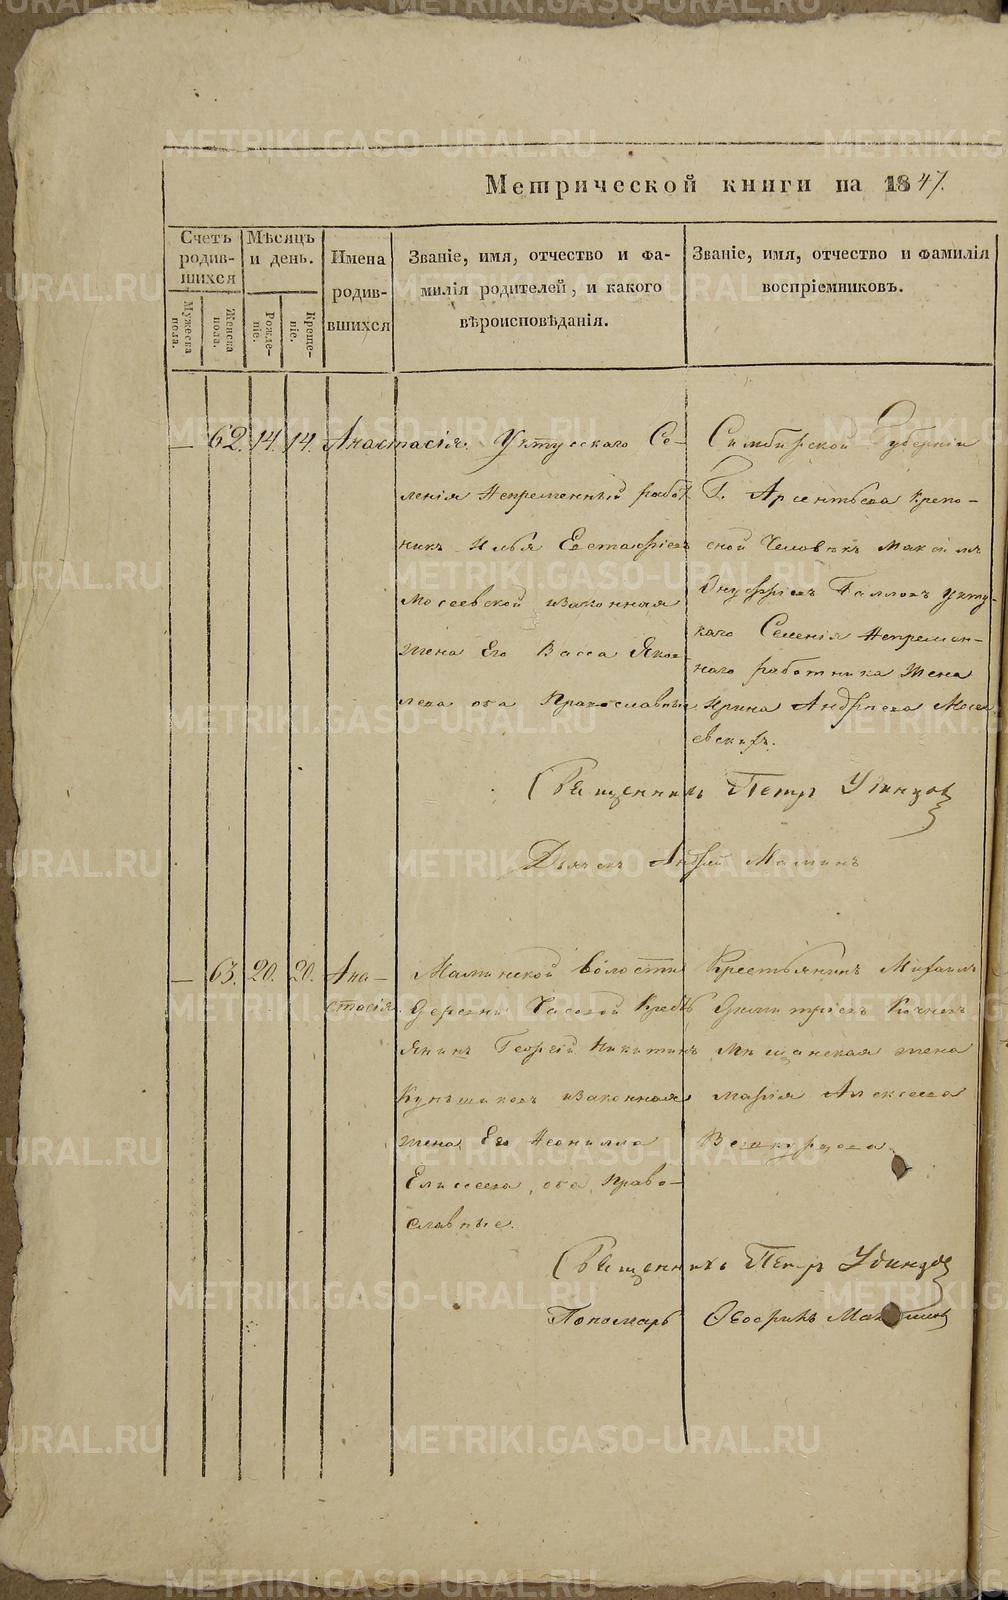 Метрической книги на 1847.
Счетъ родив-шихся
Мѣсяцъ и день.
Имена родив-вшихся
Званіе, имя, отчество и фа-
милія родителей, и какого
вѣроисповѣданія.
Званіе, имя, отчество и фамилія
воспріемниковъ.
Мужеска пола.
Женска пола.
Рожде-ніе.
Креще-ніе.
— 62. 14. 14. Анастасія.
Уктусскаго Се-
ленія Непременный работ
никъ Илья Евстафіевъ
Мосеевской изаконная
жена Его Васса Яков
лева оба Православныя
Симбирской Губерніи
Г. Арсентьева крепо-
сной Человѣкъ Максимъ
Онуфріевъ Укту-
каго Селенія Непремен-
наго работника Жена
Ирина Андреева Мосе
евскихъ.
Священникъ Петръ Удинцов
Дьячекъ Андрей Малинъ
— 63. 20. 20. Ана-
стасія.
Маминской волости
Деревни Часовой Кресть
янинъ Георгій Никитинъ
изаконная
жена Его Неонилла
Елисеева, оба Право-
славные.
Крестьянинъ Михаилъ
Димитріевъ
Мещанская жена
Марія Алексеева
Священникъ Петръ Удинцов
Пономарь
METRIKI.GASO-URAL.RU